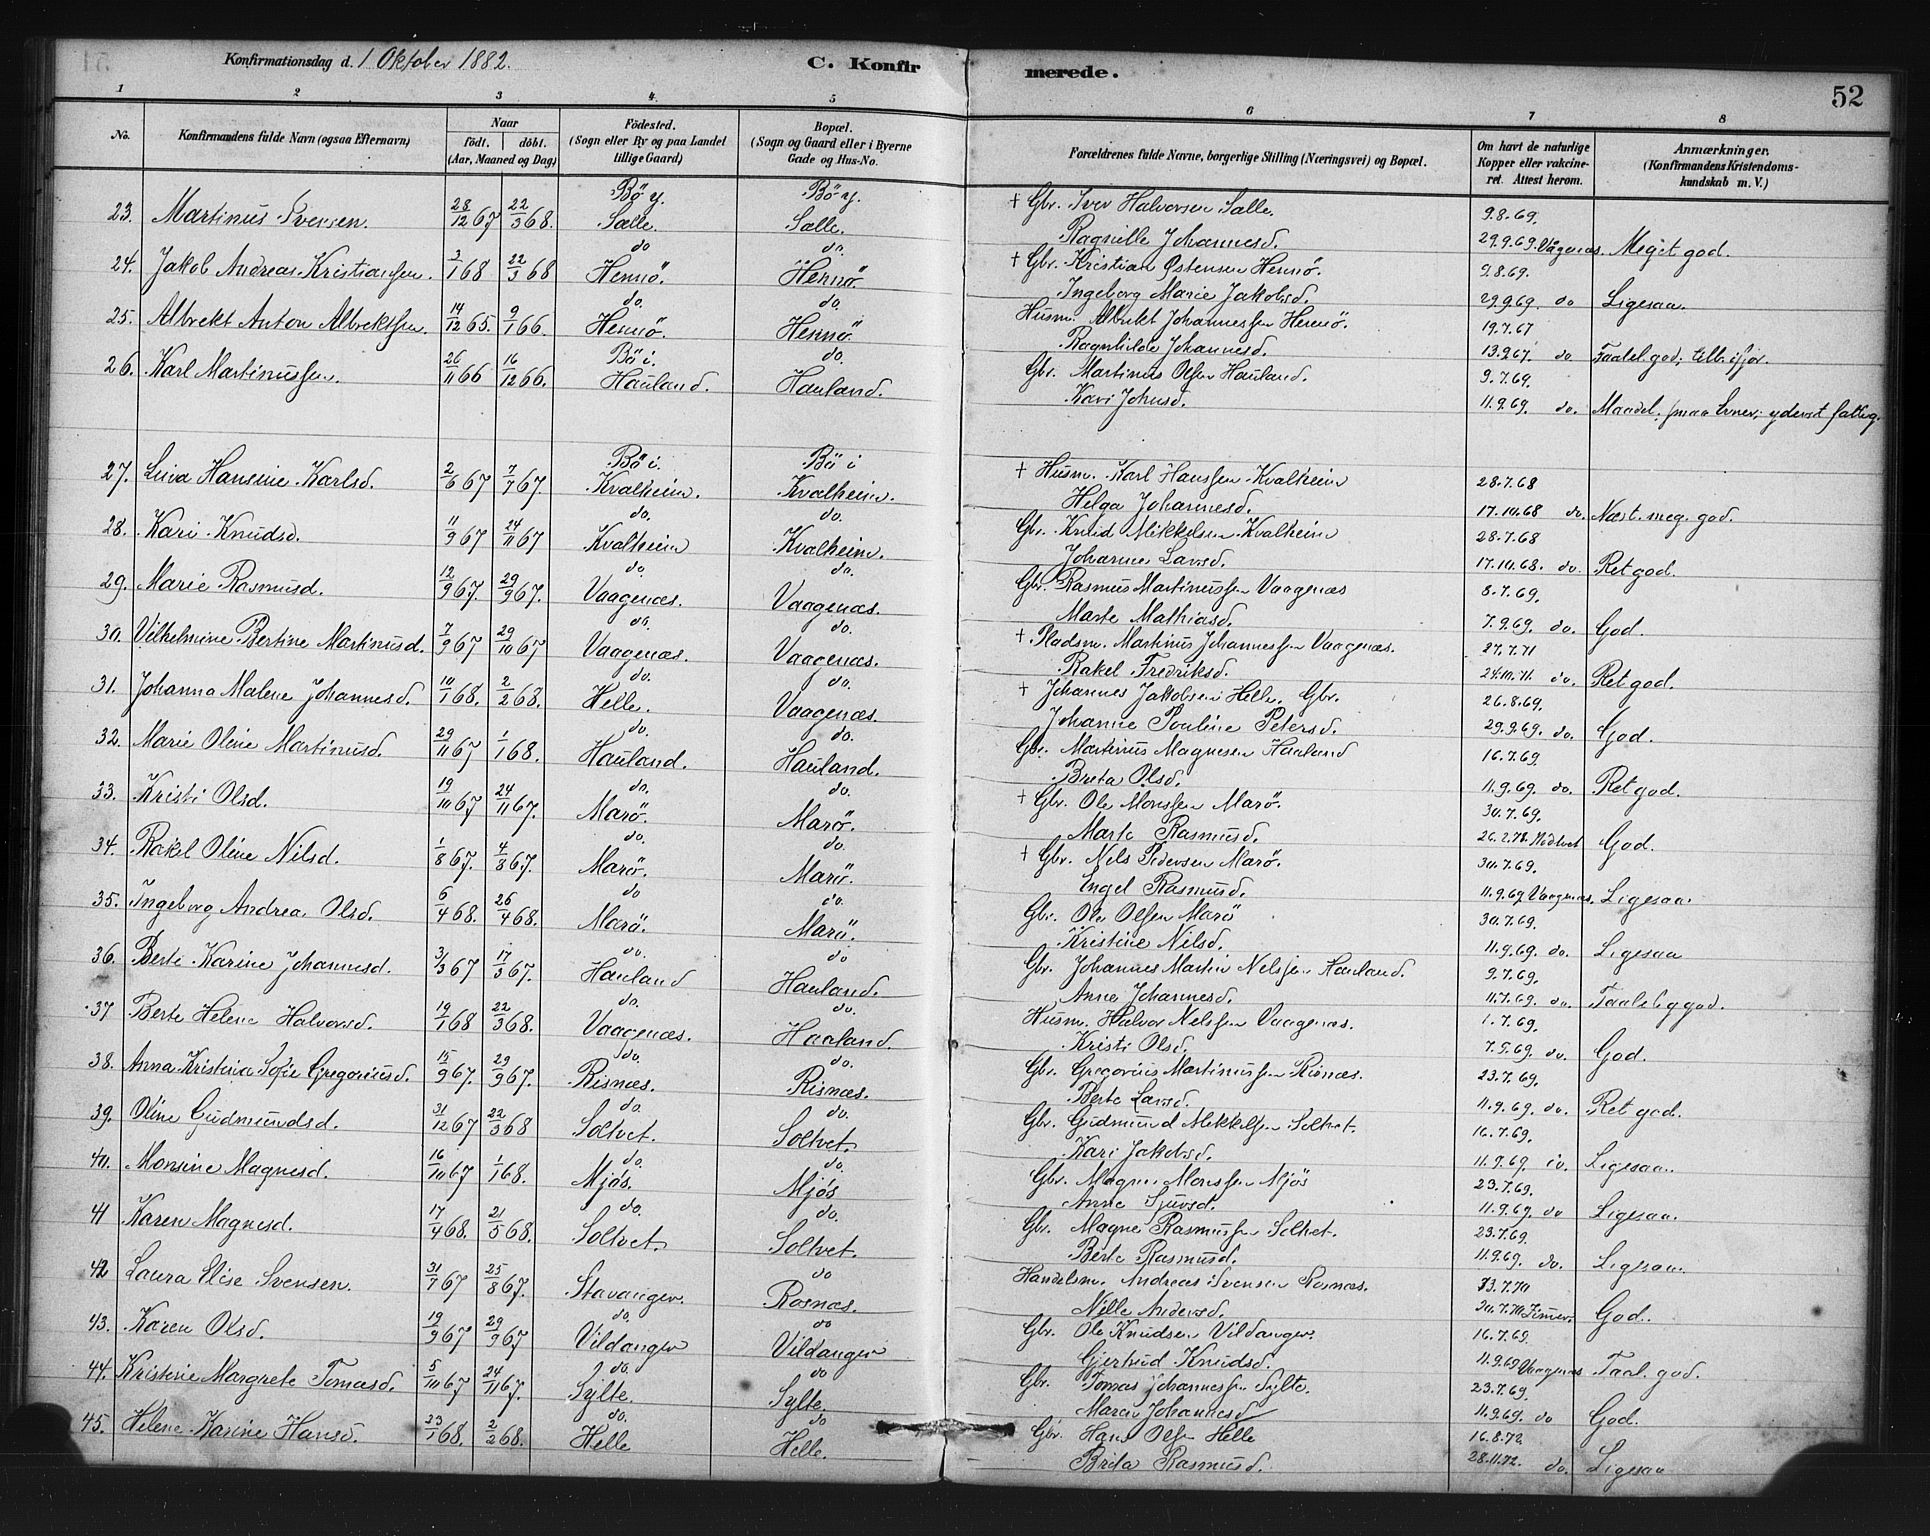 Konfirmationsdag d. 1 Oktober 1882.
C. Konfirmerede.
52
1 2 3 4 5 6 7 8
No.
Konfirmandens fulde Navn (ogsaa Efternavn)
Naar
födt. döbt.
(Aar, Maaned og Dag)
Födested.
(Sogn eller By og paa Landet tillige Gaard)
Bopæl.
(Sogn og Gaard eller i Byerne Gade og Hus-No.
Forældrenes fulde Navne, borgerlige Stilling (Næringsvei) og Bopæl.
Om havt de naturlige Kopper eller vakcineret. Attest herom.
Anmærkninger.
(Konfirmandens Kristendomskundskab m. V.)
23. Martinus Iversen. 28/12 67 22/3 68. Bö y. Salle. Bö y. Salle. † Gbr. Iver Halvorsen Salle. 9.8.69.
Ragnille Johannesd. 29.9.69. Vågenæs. Meget god.
24. Jakob Andreas Kristianssen. 3/1 68 22/3 68 do Hennö. do. Hennö. † Gbr. Kristian Østensen Hennö. 9.8.69.
Ingeborg Marie Jakobsd. 29.9.69 do Ligesaa.
25. Albrekt Anton Albrektssen. 14/12 65. 9/1 66. do. Hennö. do. Hennö. Husm. Albrekt Johannessen Hennö. 19.7.67
Ragnhilde Johannesd. 13.9.67. do. Taalel. god,
26. Karl Martinussen. 26/11 66 16/12 66. Bö i. Hauland. do Hauland. Gbr. Martinus Olsen Hauland. 9.7.69.
Kari Johnsd. 11.9.69. do. Maadel.
27. Lina Hansine Karlsd. 2/6 67 7/7 67. Bö i. Kvalheim. Bö i Kvalheim. † Husm. Karl Hanssen Kvalheim 28.7.68
Helga Johannesd. 17.10.68 do. Næst. meg. god.
28. Kari Knudsd. 11/9 67 24/11 67 do. Kvalheim do. Kvalheim. Gbr. Knud Mikkelsen Kvalheim 28.7.68
Johanne Larsd. 17.10.68. do. Ret god.
29. Marie Rasmusd. 12/9 67. 29/9 67. do Vaagenæs. do. Vaagenæs. Gbr. Rasmus Martinussen Vaagenæs 8.7.69.
Marte Mathiasd. 7.9.69. do. God.
30. Vilhelmine Bertine Martinusd. 7/9 67 29/10 67 do. Vaagenæs. do. Vaagenæs. † Pladsm. Martinus Johannessen Vaagenæs. 27.7.71
Rakel Fredriksd. 24.10.71. do. Ret god.
31. Johanna Malene Johannesd. 10/1 68. 2/2 68. do. Helle. do. Vaagenæs. † Johannes Jakobsen Helle. Gbr. 26.8.69.
Johanne Pouline Petersd. 29.9.69. do. God.
32. Marie Oline Martinusd. 29/11 67 1/1 68. do. Hauland. do. Hauland. Gbr. Martinus Magnesen Hauland 16.7.69
Breta Olsd. 11.9.69. do. Ret god.
33. Kristi Olsd. 19/10 67 24/11 67. do. Marö. do. Marö. † Gbr. Ole Monssen Marö. 30.7.69.
Marte Rasmusd. God.
34. Rakel Oline Nilsd. 1/8 67. 4/8 67. do. Marö. do. Marö. † Gbr. Nels Pedersen Marö. 30.7.69.
Engel Rasmusd. 11.9.69 Vaagenæs. Ligesaa.
35. Ingeborg Andrea Olsd. 6/4 68. 26/4 68. do Marö. do. Marö. Gbr. Ole Olsen Marö 30.7.69.
Kristine Nilsd. 11.9.69. do. Ligesaa
36. Berte Karine Johannesd. 3/3 67 17/3 67. do. Hauland do Hauland. Gbr. Johannes Martin Nelssen Hauland. 9.7.69.
Anna Johannesd. 11.7.69. do. Taalelig god.
37 Berte Helene Halvorsd. 19/1 68 22/3 68. do. Vaagenæs. do. Hauland. Husm. Halvor Nelssen Vaagenæs. 1.7.69.
Kristi Olsd. 7.9.69. do. God.
38. Anna Kristina Sofie Gregoriusd. 15/9 67. 29/9 67. do. Risnæs. do. Risnæs. Gbr. Gregorius Martinussen Risnæs. 23.7.69.
Berte Larsd. 11.9.69. do. Ret god.
39. Oline Gudmundsd. 31/12 67 22/3 68 do. Soltvet. do. Soltvet. Gbr. Gudmund Mikkelsen Soltvet. 16.7.69.
Kari Jakobsd. 11.9.69. do. Ligesaa.
40. Monsine Magnesd. 16/10 67 1/1 68. do. Mjös. do. Mjös Gbr. Magne Monssen Mjös 23.7.69.
Anne Sjursd. 11.9.69. do Ligesaa.
41 Karen Magnesd. 17/4 68. 21/5 68. do. Soltvet. do. Soltvet. Gbr. Magne Rasmussen Soltvet. 23.7.69
Berte Rasmusd. 11.9.69. do. Ligesaa.
42 Laura Elise Svensen. 31/7 67 25/8 67. Stavanger. do Rosnæs. Handelsm. Andreas Svensen Rosnæs.
Nille Andersd. God.
43. Karen Olsd. 19/9 67 29/9 67 do. Vildanger do Vildanger Gbr. Ole Knudsen Vildanger. 16.7.69.
Gjertrud Knudsd. 11.9.69 Vaagenæs Taal. god.
44. Kristine Margrete Tomasd. 5/10 67 24/11 67. do. Sylte. do Sylte. Gbr. Tomas Johannessen Sylte. 23.7.69.
Maren Johannesd 11.9.69. do God.
45. Helene Karine Hansd. 23/1 68. 2/2 68. do. Helle do Helle. Gbr. Hans Olsen Helle 16.8.72.
Brita Rasmusd. 28.11.72. do. Ligesaa